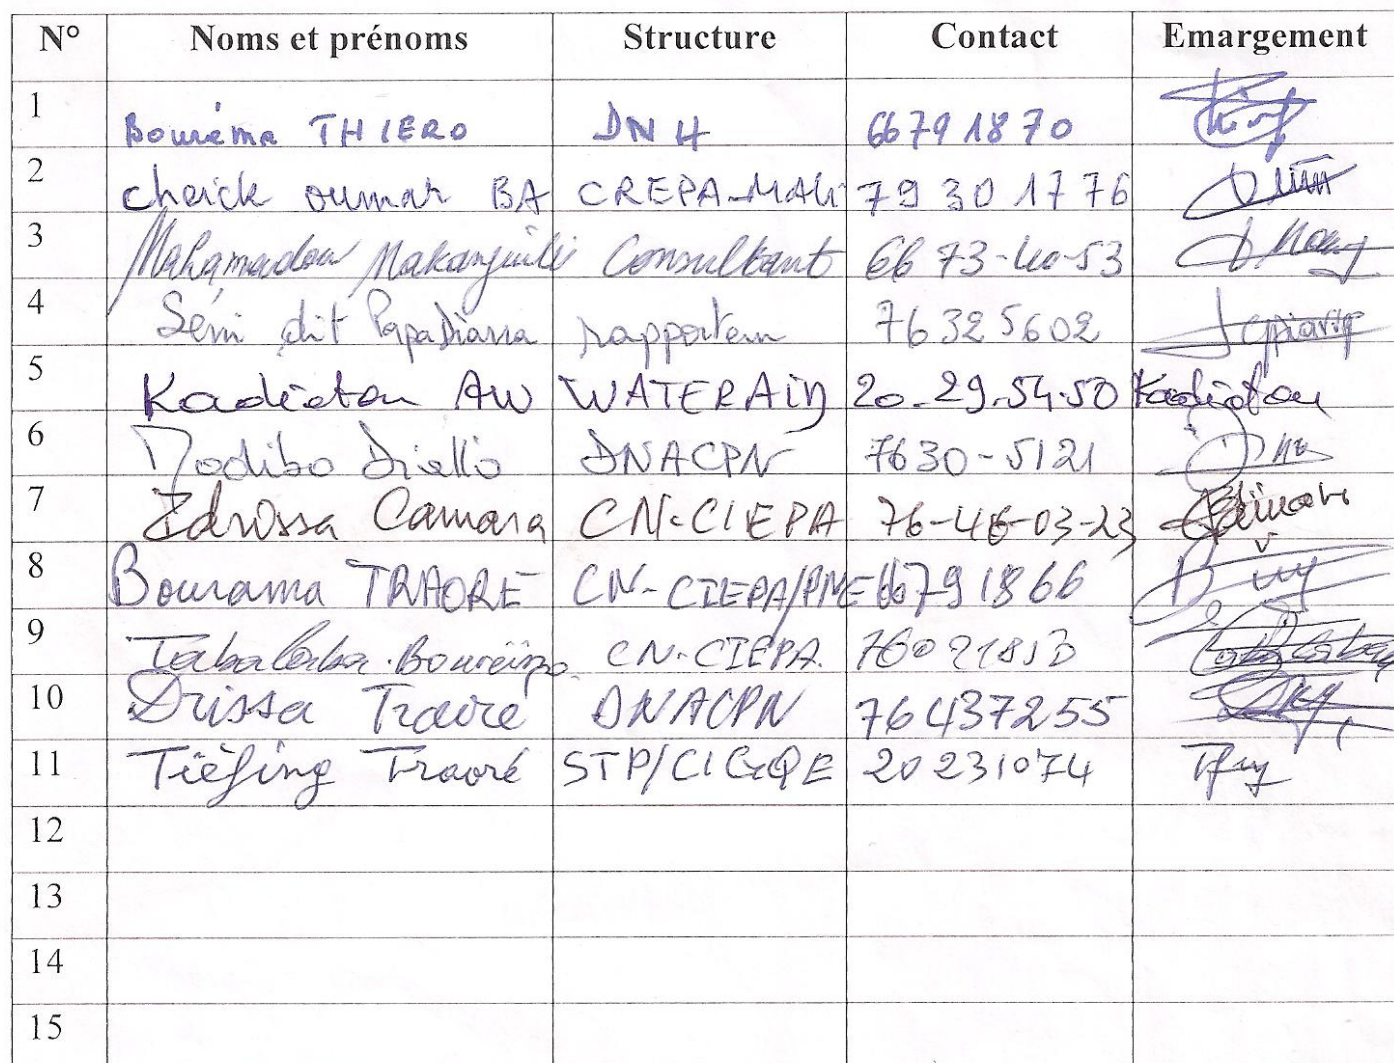 N° Noms et prénoms Structure Contact Emargement
1 Bouréma THIERO DNH 66791870
2 cheick oumar BA CREPA-MALI 79 30 17 76
3 Mahamadou Consultant 66 73-40-53
4 Sémi dit Papa Diarra rapporteur 76325602
5 Kadiatou AW WATERAID 20-29-54-50 Kadiatou
6 Modibo Diallo DNACPN 7630-5121
7 Idrissa Camara CN-CIEPA 76-46-03-23
8 Bourama TRAORE CN-CIEPA/PNE 66791866
9 CN-CIEPA
10 Drissa Traoré DNACPN 76437255
11 Tiéfing Traoré STP/CIGQE 20231074
12
13
14
15